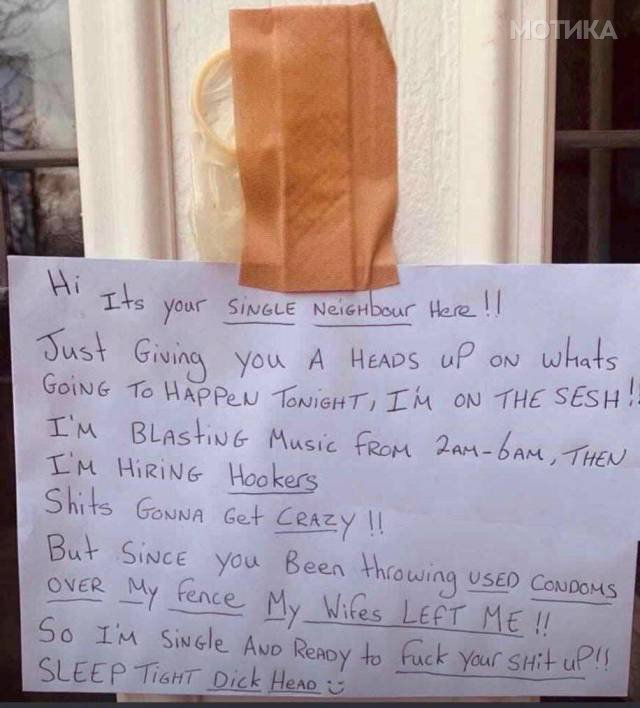 МОТИКА
Hi Its your SINGLE NeiGHbour Here!!
Just Giving you A HEADS uP ON whats
GoiNG TO HAPPeN TONIGHT, I'M ON THE SESH!!
I'M BLAStiNG Music FROM 2AM-6AM, THEN
I'M HiRiNG Hookers
Shits GONNA Get CRAZY!!
But SiNCE you Been throwing USED CONDOMS
OVER My fence My Wifes LEFT ME!!
So I'M SiNGLE AND ReADy to fuck your SHit uP!!
SLEEP TiGHT Dick HeAD